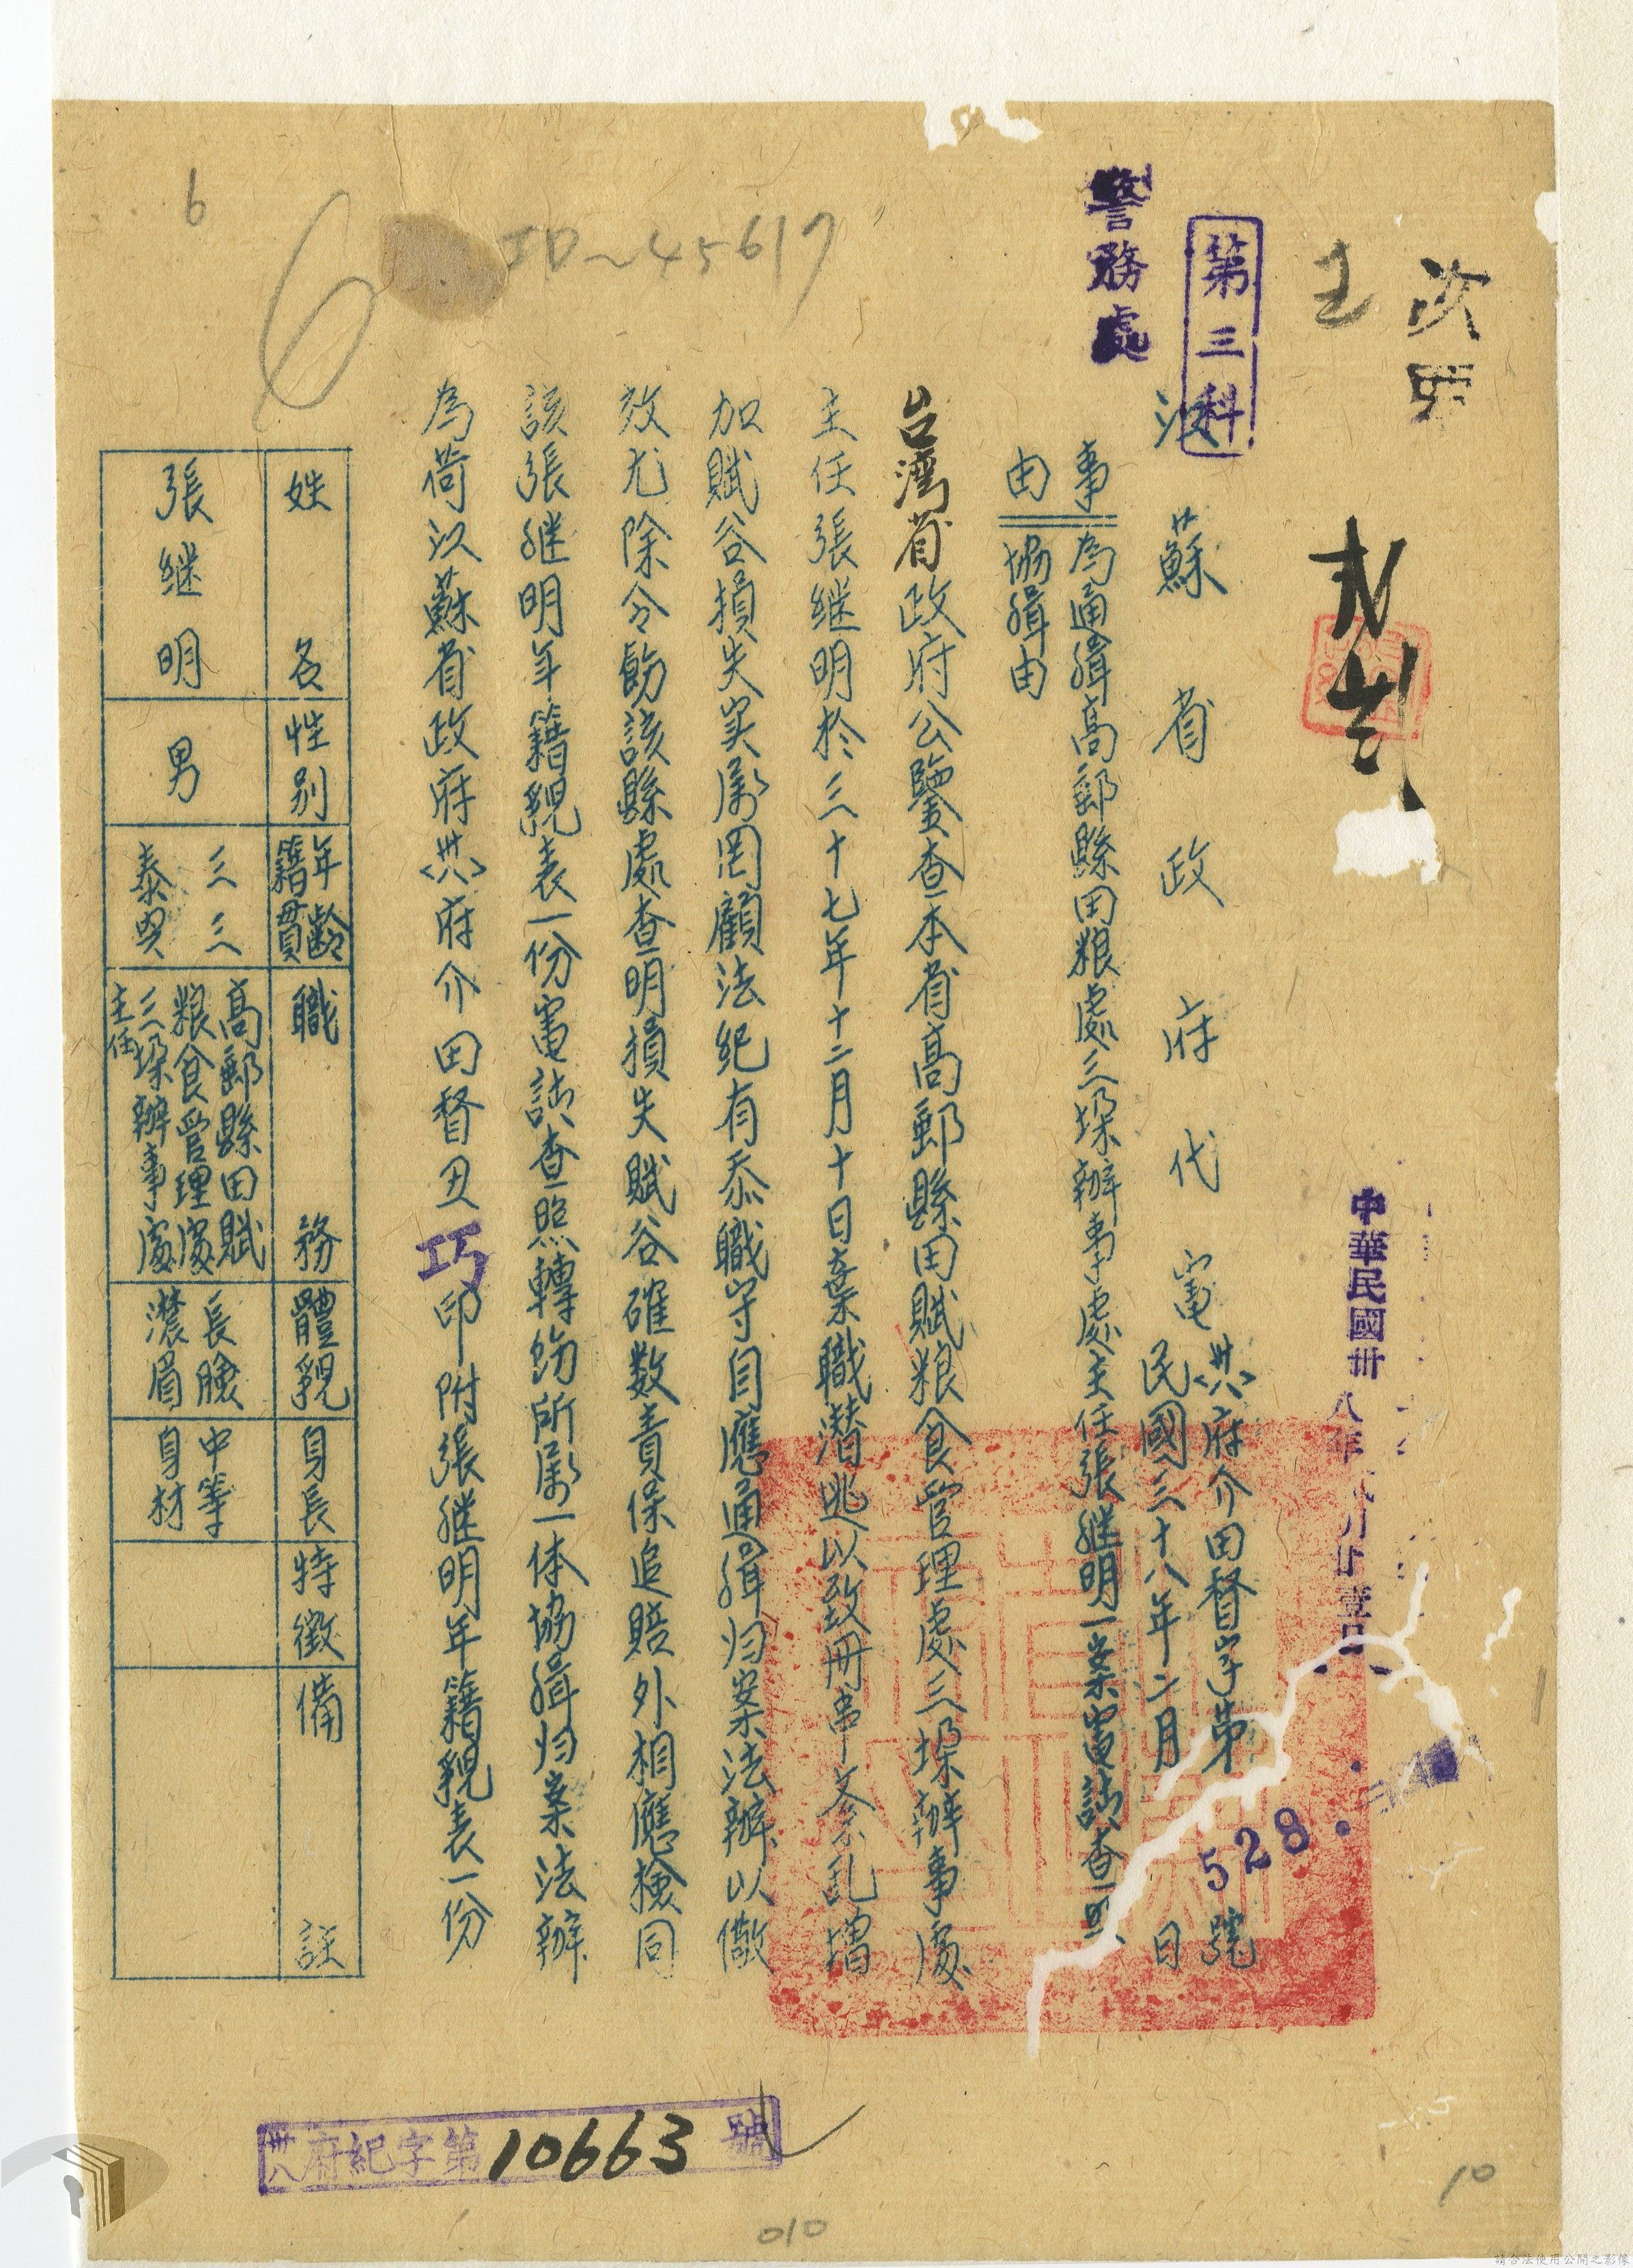 第三科
警務處
中華民國卅八年 月廿壹日
江蘇省政府代電
卅八府介田督字第
528
號
民國三十八年二月 日
事由
為通緝高郵縣田粮處三垛辦事處主任張继明一案電請查照
協緝由
台湾省政府公鑒查本省高郵縣田賦粮食管理處三垛辦事處
主任張继明於三十七年十二月十日棄職潜逃以致册串紊乱增
加賦谷損失实屬罔顧法紀有忝職守自應通緝归案法辦以儆
效尤除令飭該縣處查明損失賦谷確数責保追賠外相應檢同
該張继明年籍貌表一份電請查照轉飭所屬一体協緝归案法辦
為荷江蘇省政府卅八府介田督丑巧印附張继明年籍貌表一份
姓名
性別
年齡
籍貫
職務
體貌
身長
特徵
備註
張继明
男
三三
泰興
高郵縣田賦
粮食管理處
三垛辦事處
主任
長臉
濃眉
中等
身材
卅八府紀字第10663號
ID~45617
6
6
10
010
請合法使用公開之影像